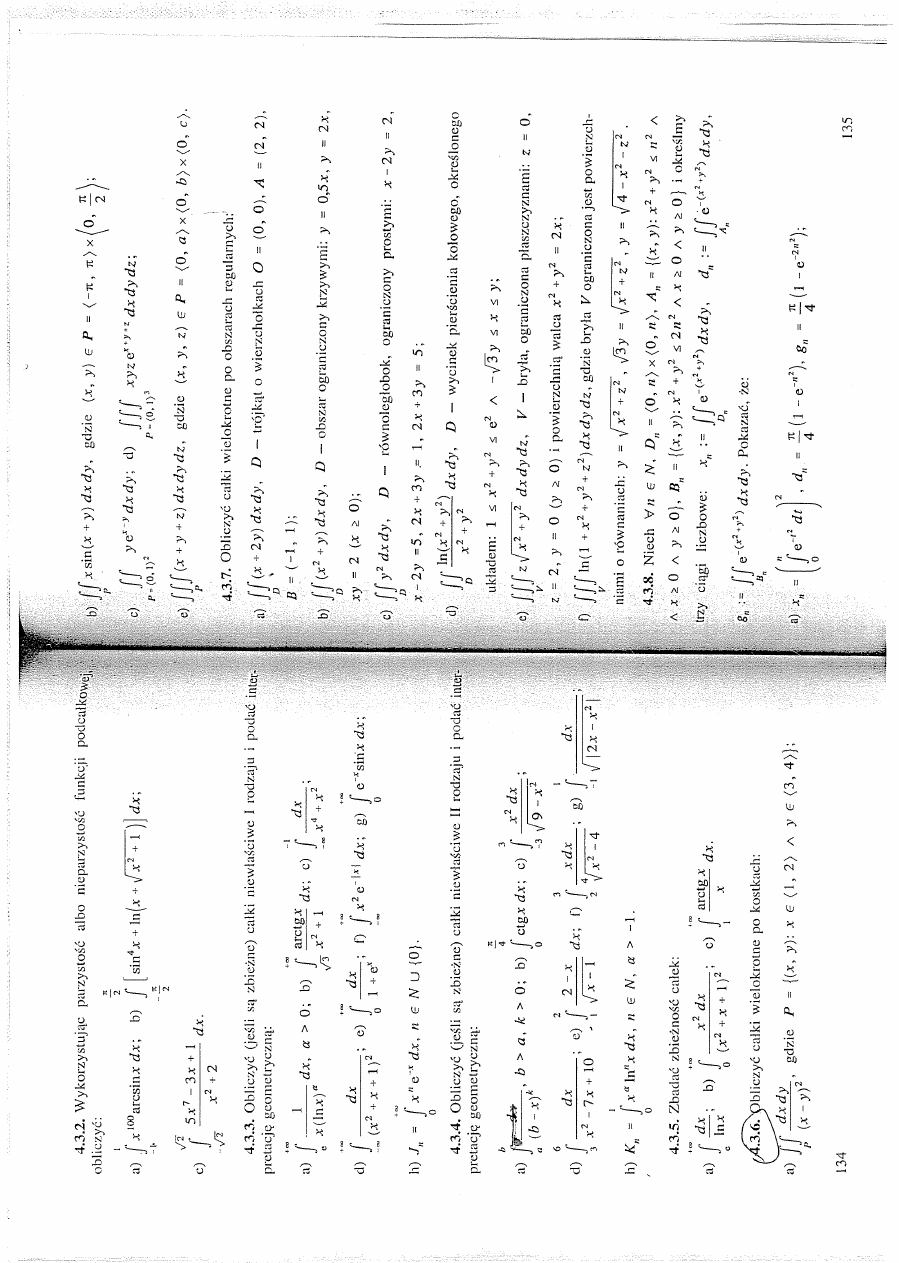 4.3.2. Wykorzystując parzystość albo nieparzystość funkcji podcałkowej,
obliczyć:
a) ∫_{-1}^{1} x^{100} arcsinx dx; b) ∫_{-π/2}^{π/2} [sin⁴x + ln(x + √(x² + 1))] dx;
c) ∫_{-√2}^{√2} (5x⁷ − 3x + 1)/(x² + 2) dx.
4.3.3. Obliczyć (jeśli są zbieżne) całki niewłaściwe I rodzaju i podać inter-
pretację geometryczną:
a) ∫_{e}^{+∞} 1/(x(lnx)^α) dx, α > 0; b) ∫_{√3}^{+∞} arctgx/(x² + 1) dx; c) ∫_{-∞}^{-1} dx/(x⁴ + x²);
d) ∫_{-∞}^{+∞} dx/(x² + x + 1)²; e) ∫_{0}^{+∞} dx/(1 + e^x); f) ∫_{-∞}^{+∞} x² e^{-|x|} dx; g) ∫_{0}^{+∞} e^{-x} sinx dx;
h) J_n = ∫_{0}^{+∞} x^n e^{-x} dx, n ∈ N ∪ {0}.
4.3.4. Obliczyć (jeśli są zbieżne) całki niewłaściwe II rodzaju i podać inter-
pretację geometryczną:
a) ∫_{a}^{b} dx/(b − x)^k, b > a, k > 0; b) ∫_{0}^{π/4} ctgx dx; c) ∫_{-3}^{3} x² dx/√(9 − x²);
d) ∫_{3}^{6} dx/(x² − 7x + 10); e) ∫_{1}^{2} (2 − x)/√(x − 1) dx; f) ∫_{2}^{3} x dx/⁴√(x² − 4); g) ∫_{-1}^{1} dx/√|2x − x²|;
h) K_n = ∫_{0}^{1} x^α ln^n x dx, n ∈ N, α > −1.
4.3.5. Zbadać zbieżność całek:
a) ∫_{e}^{+∞} dx/lnx; b) ∫_{0}^{+∞} x² dx/(x² + x + 1)²; c) ∫_{1}^{+∞} arctgx/x dx.
4.3.6. Obliczyć całki wielokrotne po kostkach:
a) ∬_P dx dy/(x − y)², gdzie P = {(x, y): x ∈ ⟨1, 2⟩ ∧ y ∈ ⟨3, 4⟩};
134
b) ∬_P x sin(x + y) dx dy, gdzie (x, y) ∈ P = ⟨−π, π⟩ × ⟨0, π/2⟩;
c) ∬_{P=⟨0,1⟩²} y e^{x−y} dx dy; d) ∭_{P=⟨0,1⟩³} xyz e^{x+y+z} dx dy dz;
e) ∭_P (x + y + z) dx dy dz, gdzie (x, y, z) ∈ P = ⟨0, a⟩ × ⟨0, b⟩ × ⟨0, c⟩.
4.3.7. Obliczyć całki wielokrotne po obszarach regularnych:
a) ∬_D (x + 2y) dx dy, D — trójkąt o wierzchołkach O = (0, 0), A = (2, 2),
B = (−1, 1);
b) ∬_D (x² + y) dx dy, D — obszar ograniczony krzywymi: y = 0,5x, y = 2x,
xy = 2 (x ≥ 0);
c) ∬_D y² dx dy, D — równoległobok, ograniczony prostymi: x − 2y = 2,
x − 2y = 5, 2x + 3y = 1, 2x + 3y = 5;
d) ∬_D ln(x² + y²)/(x² + y²) dx dy, D — wycinek pierścienia kołowego, określonego
układem: 1 ≤ x² + y² ≤ e² ∧ −√3 y ≤ x ≤ y;
e) ∭_V z√(x² + y²) dx dy dz, V — bryła, ograniczona płaszczyznami: z = 0,
z = 2, y = 0 (y ≥ 0) i powierzchnią walca x² + y² = 2x;
f) ∭_V ln(1 + x² + y² + z²) dx dy dz, gdzie bryła V ograniczona jest powierzch-
niami o równaniach: y = √(x² + z²), √3y = √(x² + z²), y = √(4 − x² − z²).
4.3.8. Niech ∀n ∈ N, D_n = ⟨0, n⟩ × ⟨0, n⟩, A_n = {(x, y): x² + y² ≤ n² ∧
∧ x ≥ 0 ∧ y ≥ 0}, B_n = {(x, y): x² + y² ≤ 2n² ∧ x ≥ 0 ∧ y ≥ 0} i określmy
trzy ciągi liczbowe: x_n := ∬_{D_n} e^{-(x²+y²)} dx dy, d_n := ∬_{A_n} e^{-(x²+y²)} dx dy,
g_n := ∬_{B_n} e^{-(x²+y²)} dx dy. Pokazać, że:
a) x_n = (∫_{0}^{n} e^{-t²} dt)², d_n = π/4 (1 − e^{-n²}), g_n = π/4 (1 − e^{-2n²});
135